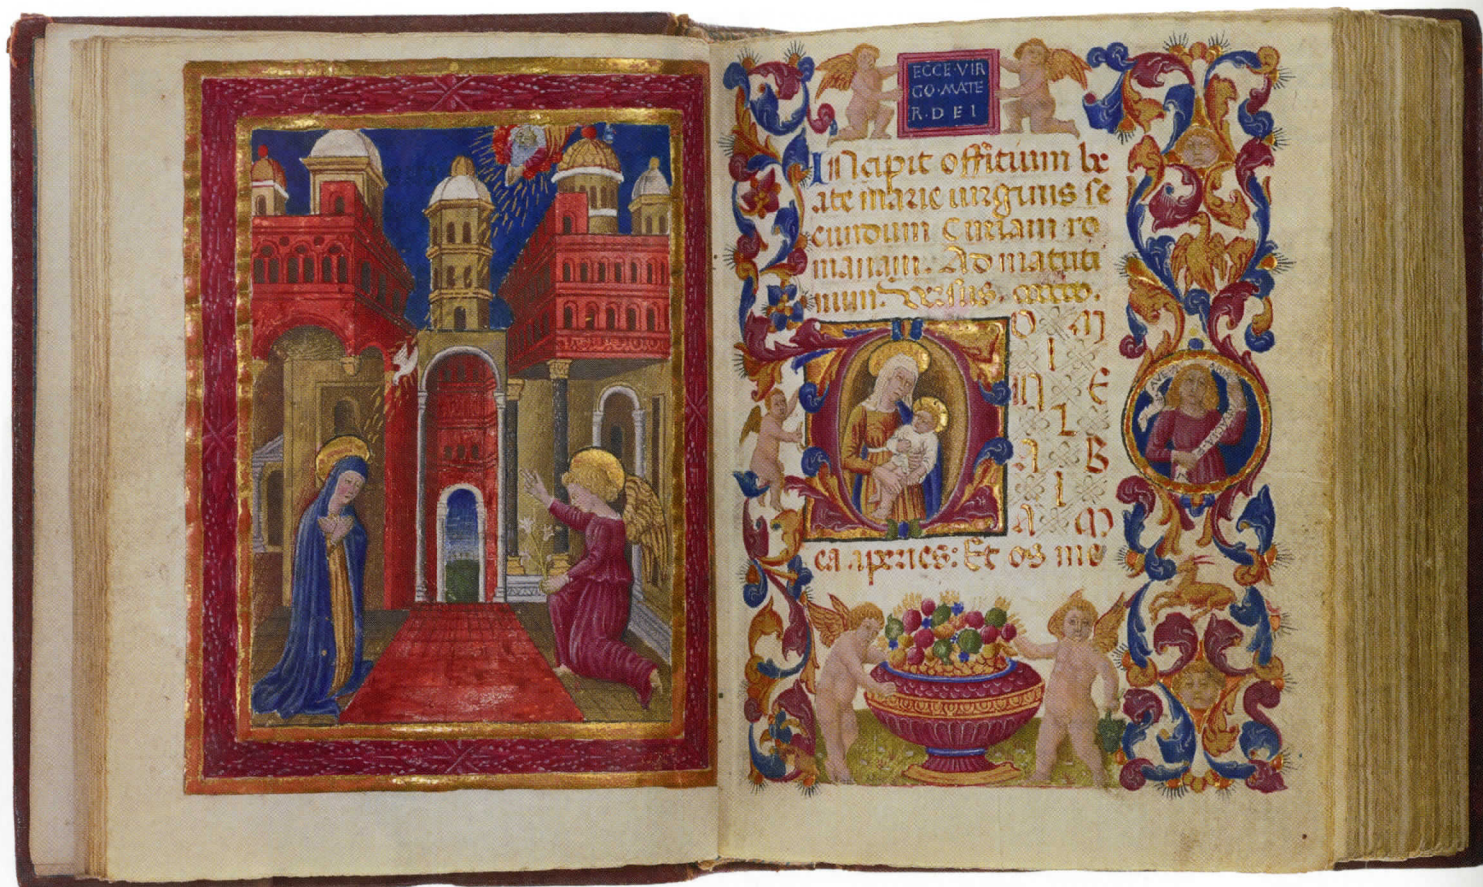 ECCE·VIR
GO·MATE
R·D E I
INcipit offitium be
ate marie uirginis se
cundum Curiam ro
manam. Ad matuti
num. Versus.
D O M
I
N E
L
A B
I
A M
ea aperies: Et os me